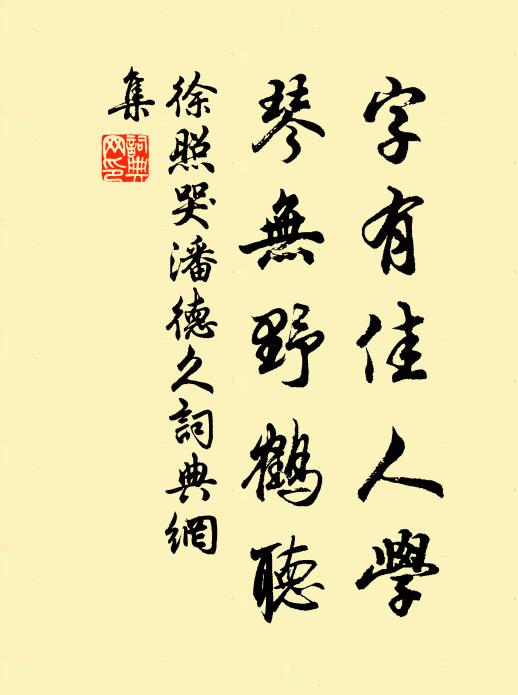 字有佳人學
琴無野鶴聽
徐照哭潘德久詞典網
集
詞典網印